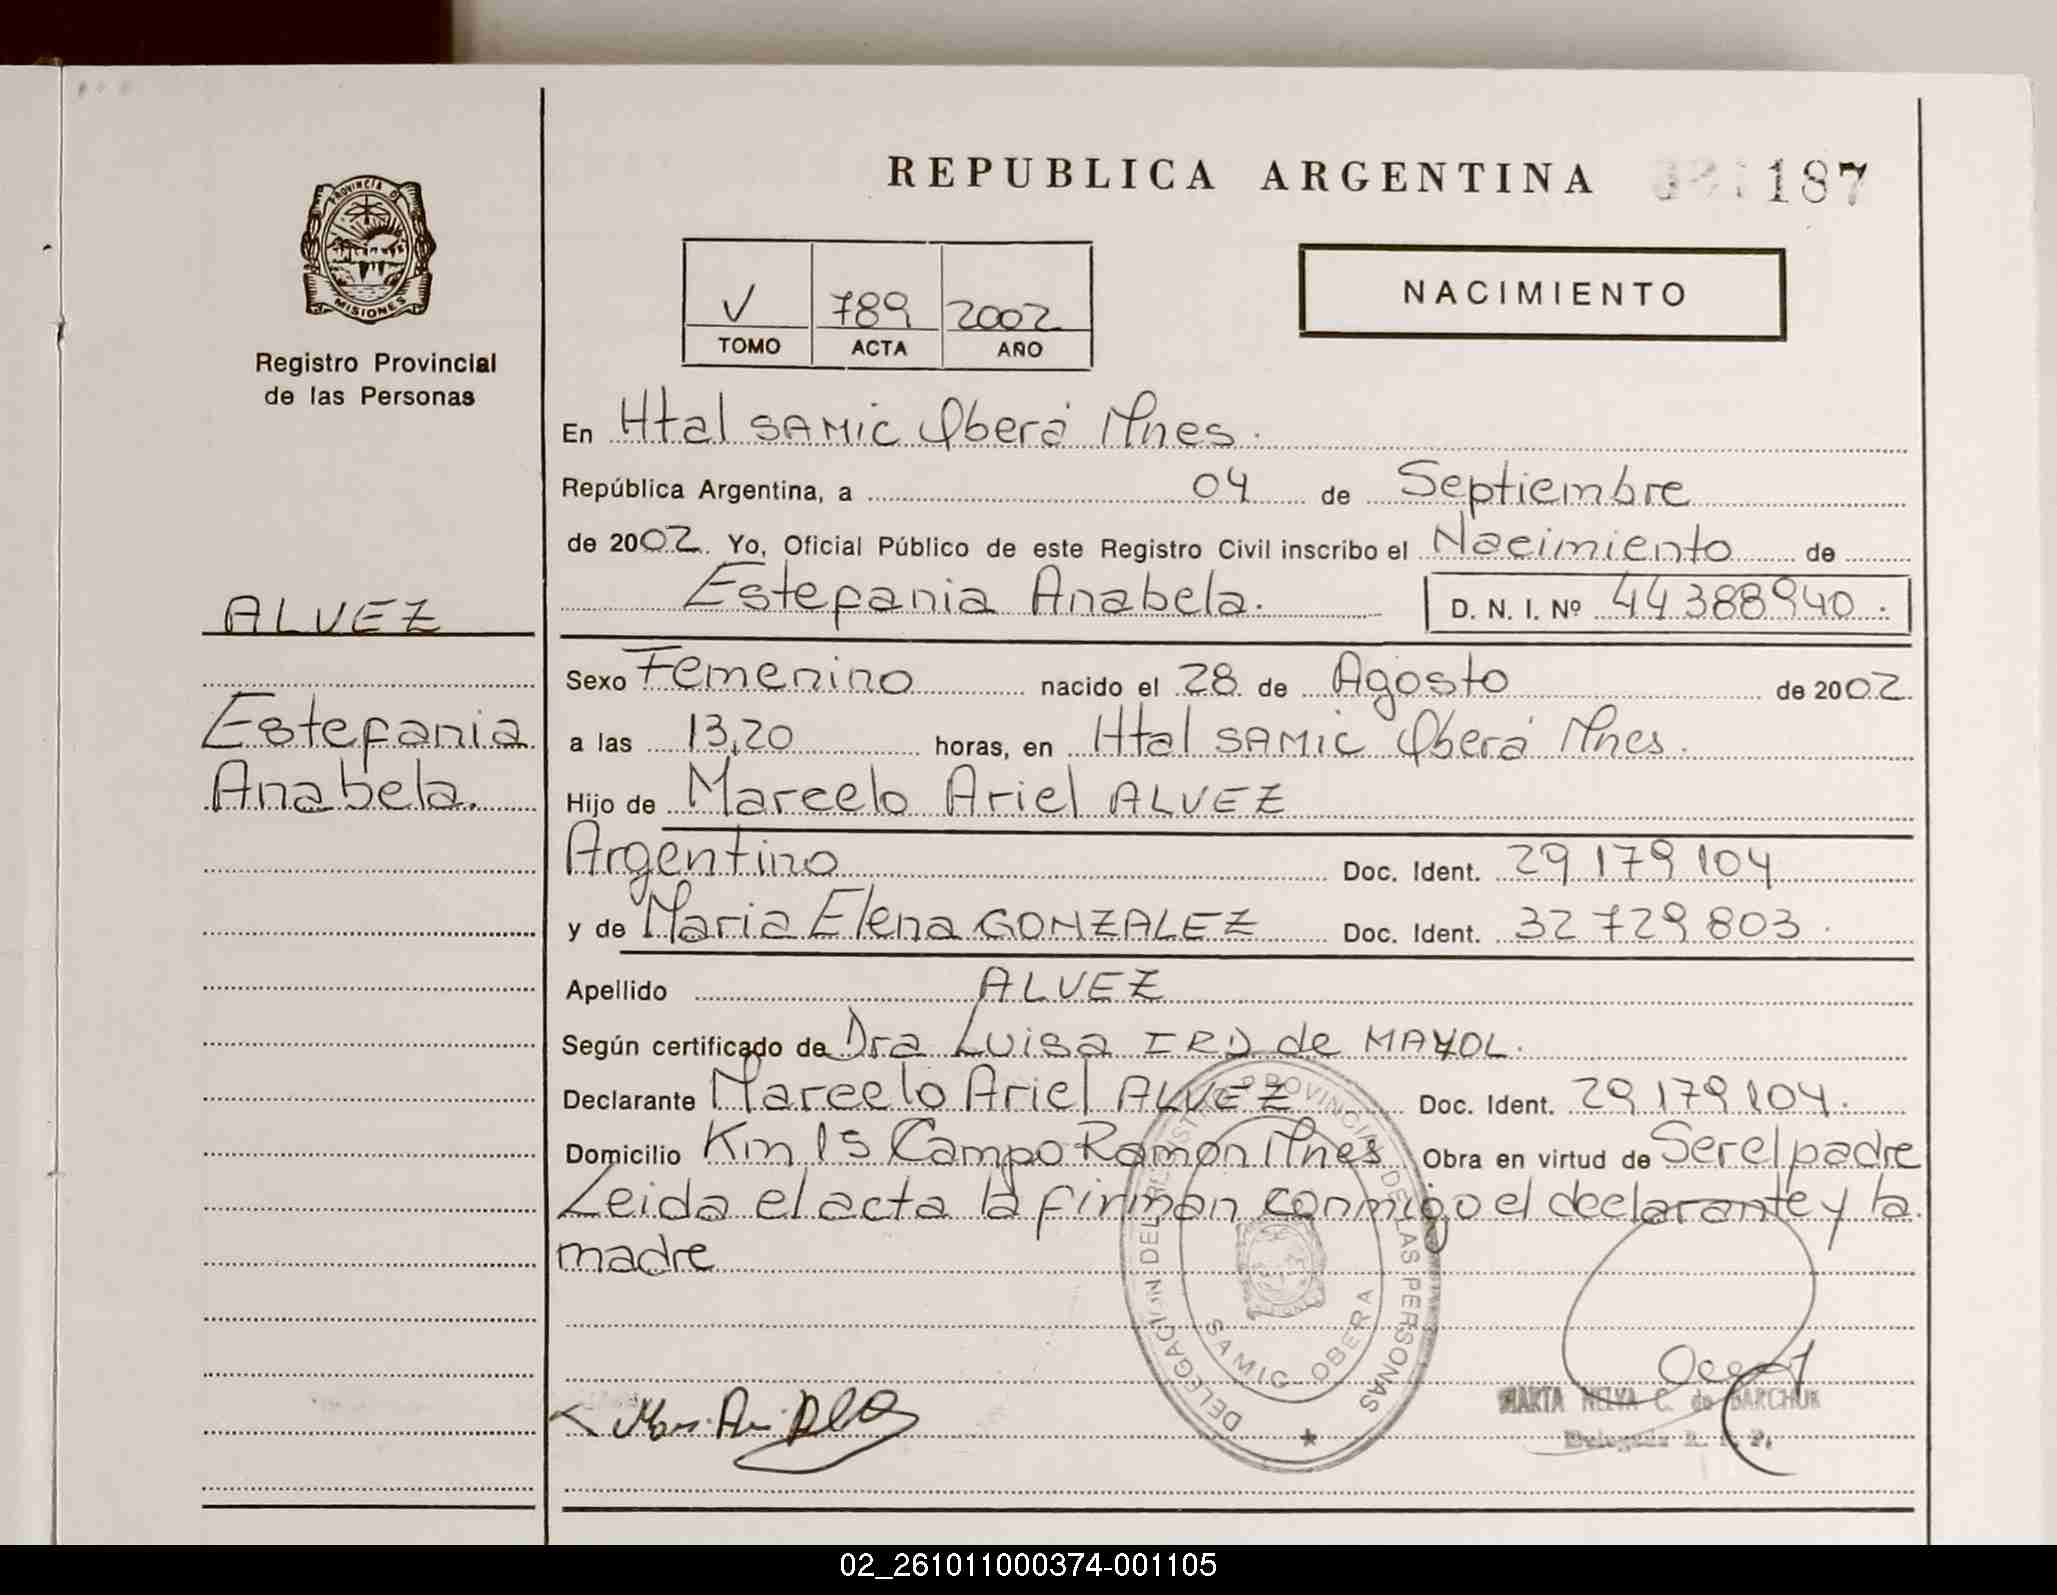 REPUBLICA ARGENTINA 187
PROVINCIA DE MISIONES
Registro Provincial
de las Personas
NACIMIENTO
V 789 2002
TOMO ACTA AÑO
En Htal SAMIC Oberá Mnes.
República Argentina, a 04 de Septiembre
de 2002. Yo, Oficial Público de este Registro Civil inscribo el Nacimiento de
Estefania Anabela. D. N. I. Nº 44388940.
ALVEZ
Estefania
Anabela.
Sexo Femenino nacido el 28 de Agosto de 2002.
a las 13,20 horas, en Htal SAMIC Oberá Mnes.
Hijo de Marcelo Ariel ALVEZ
Argentino Doc. Ident. 29 179 104
y de Maria Elena GONZALEZ Doc. Ident. 32 729 803.
Apellido ALVEZ
Según certificado de Dra Luisa IRD de MAYOL.
Declarante Marcelo Ariel ALVEZ Doc. Ident. 29 179 104.
Domicilio Km 15 Campo Ramon Mnes Obra en virtud de Ser el padre
Leida el acta la firman conmigo el declarante y la
madre
DELEGACION DEL REGISTRO PROVINCIAL DE LAS PERSONAS
SAMIC OBERA
MARTA NELVA C. de BARCHUK
Delegada R. P. P.
02_261011000374-001105